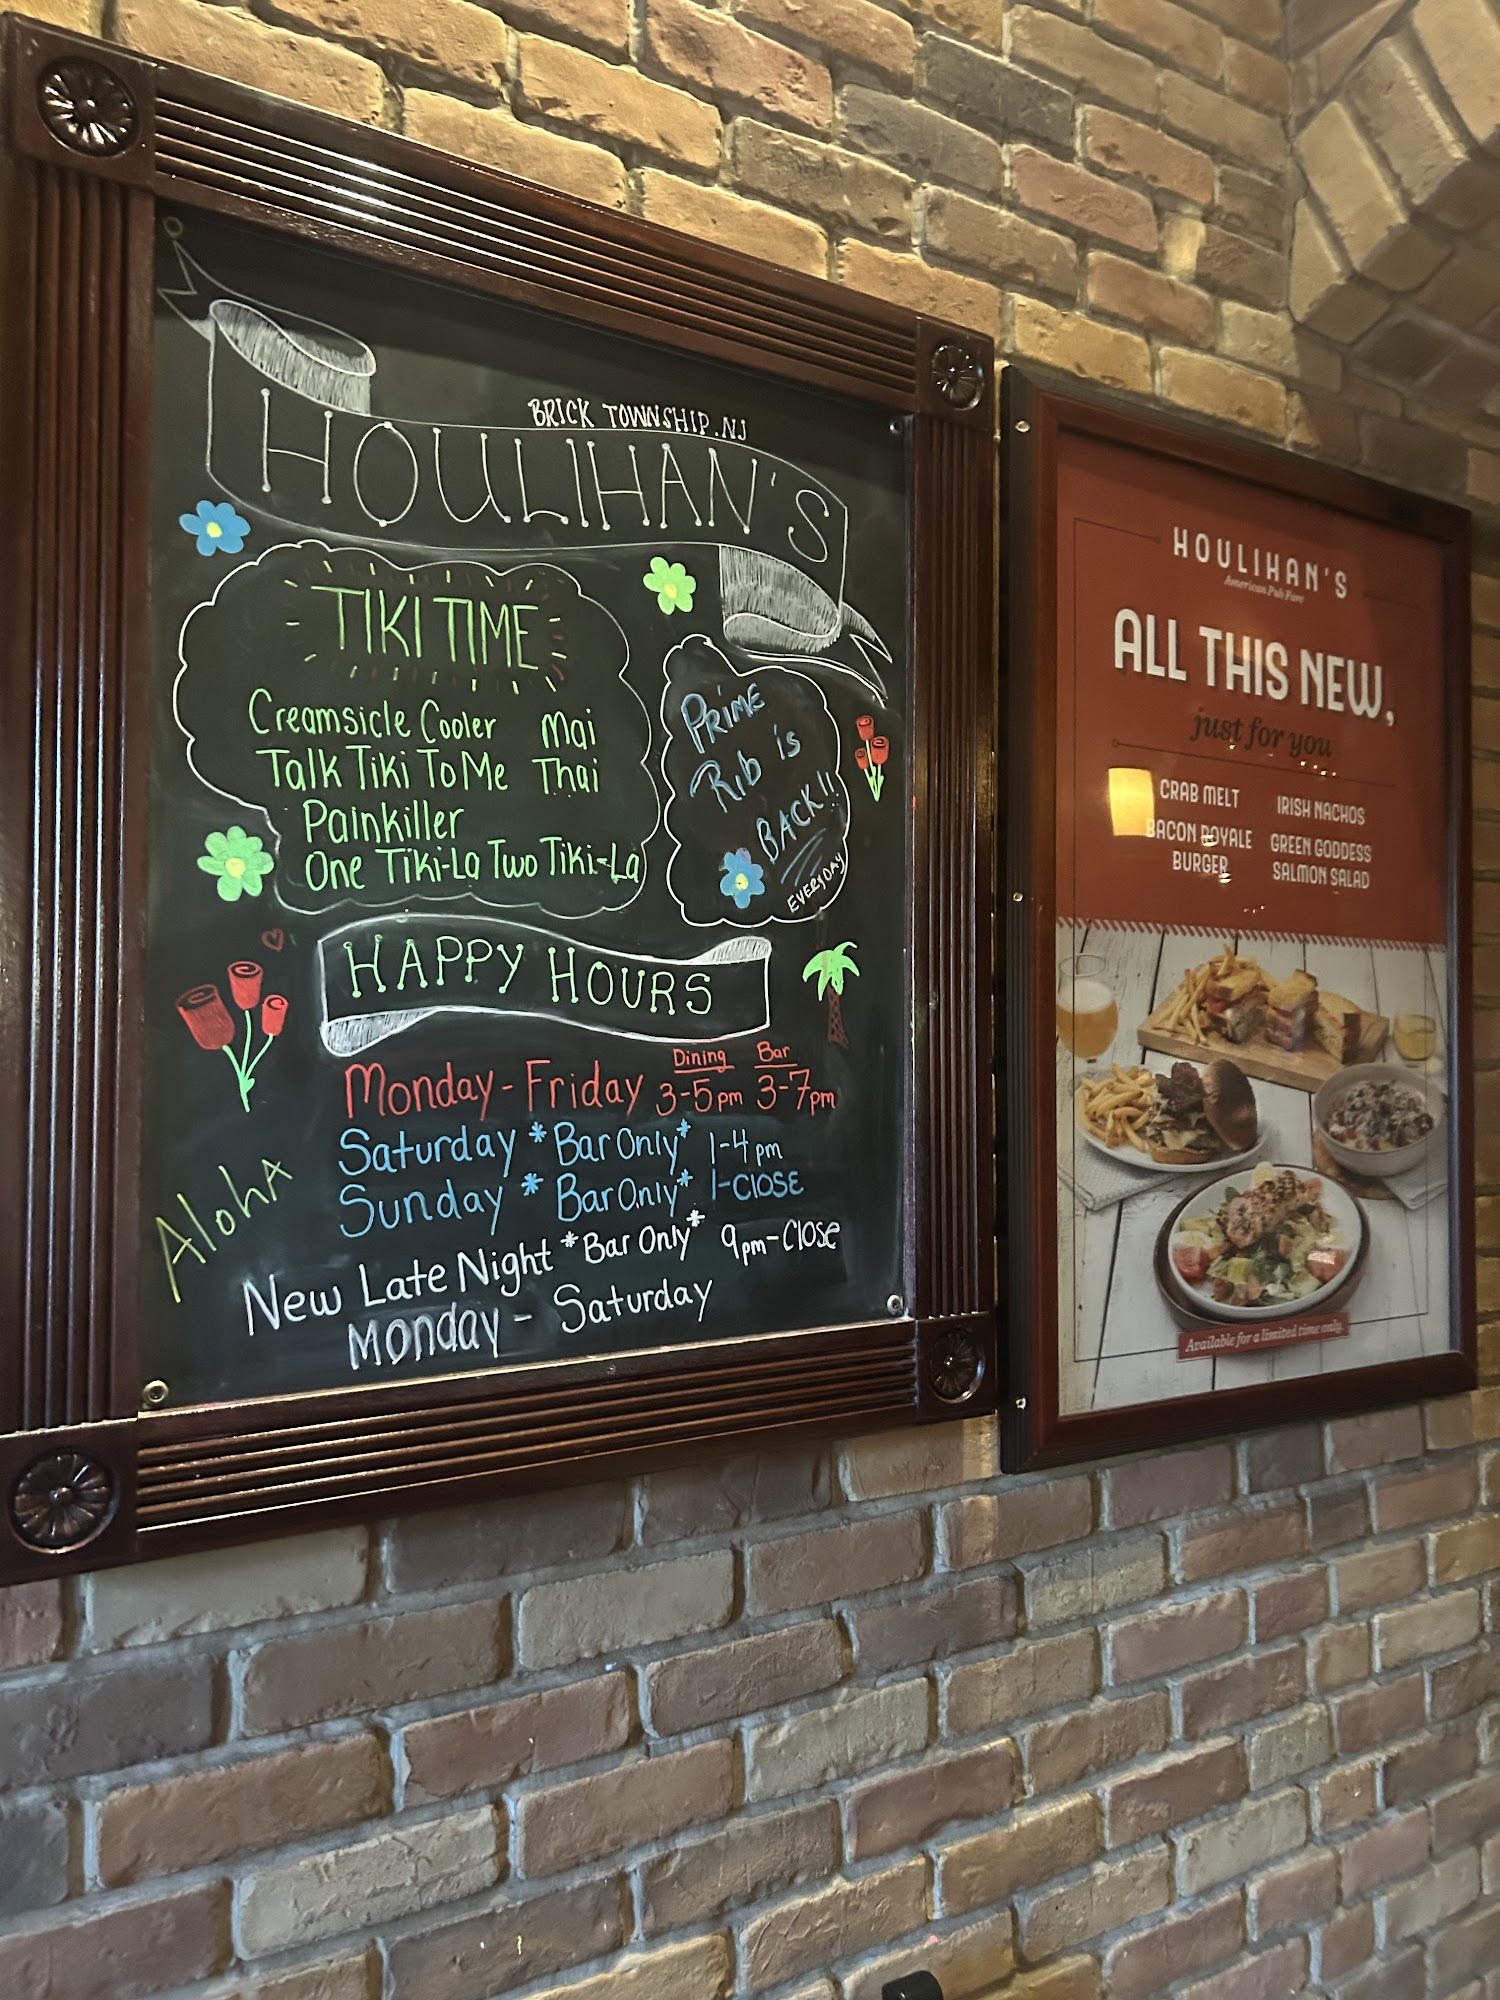 BRICK TOWNSHIP. NJ
HOULIHAN'S
TIKI TIME
Creamsicle Cooler Mai
Talk Tiki To Me Thai
Painkiller
One Tiki-La Two Tiki-La
PRIME
RIB is
BACK!!
EVERYDAY
HAPPY HOURS
Dining Bar
Monday - Friday 3-5pm 3-7pm
Saturday *Bar Only* 1-4pm
Sunday *Bar Only* 1-CLOSE
Aloha
New Late Night *Bar Only* 9pm-Close
Monday - Saturday
HOULIHAN'S
American Pub Fare
ALL THIS NEW,
just for you
CRAB MELT
BACON ROYALE
BURGER
IRISH NACHOS
GREEN GODDESS
SALMON SALAD
Available for a limited time only.